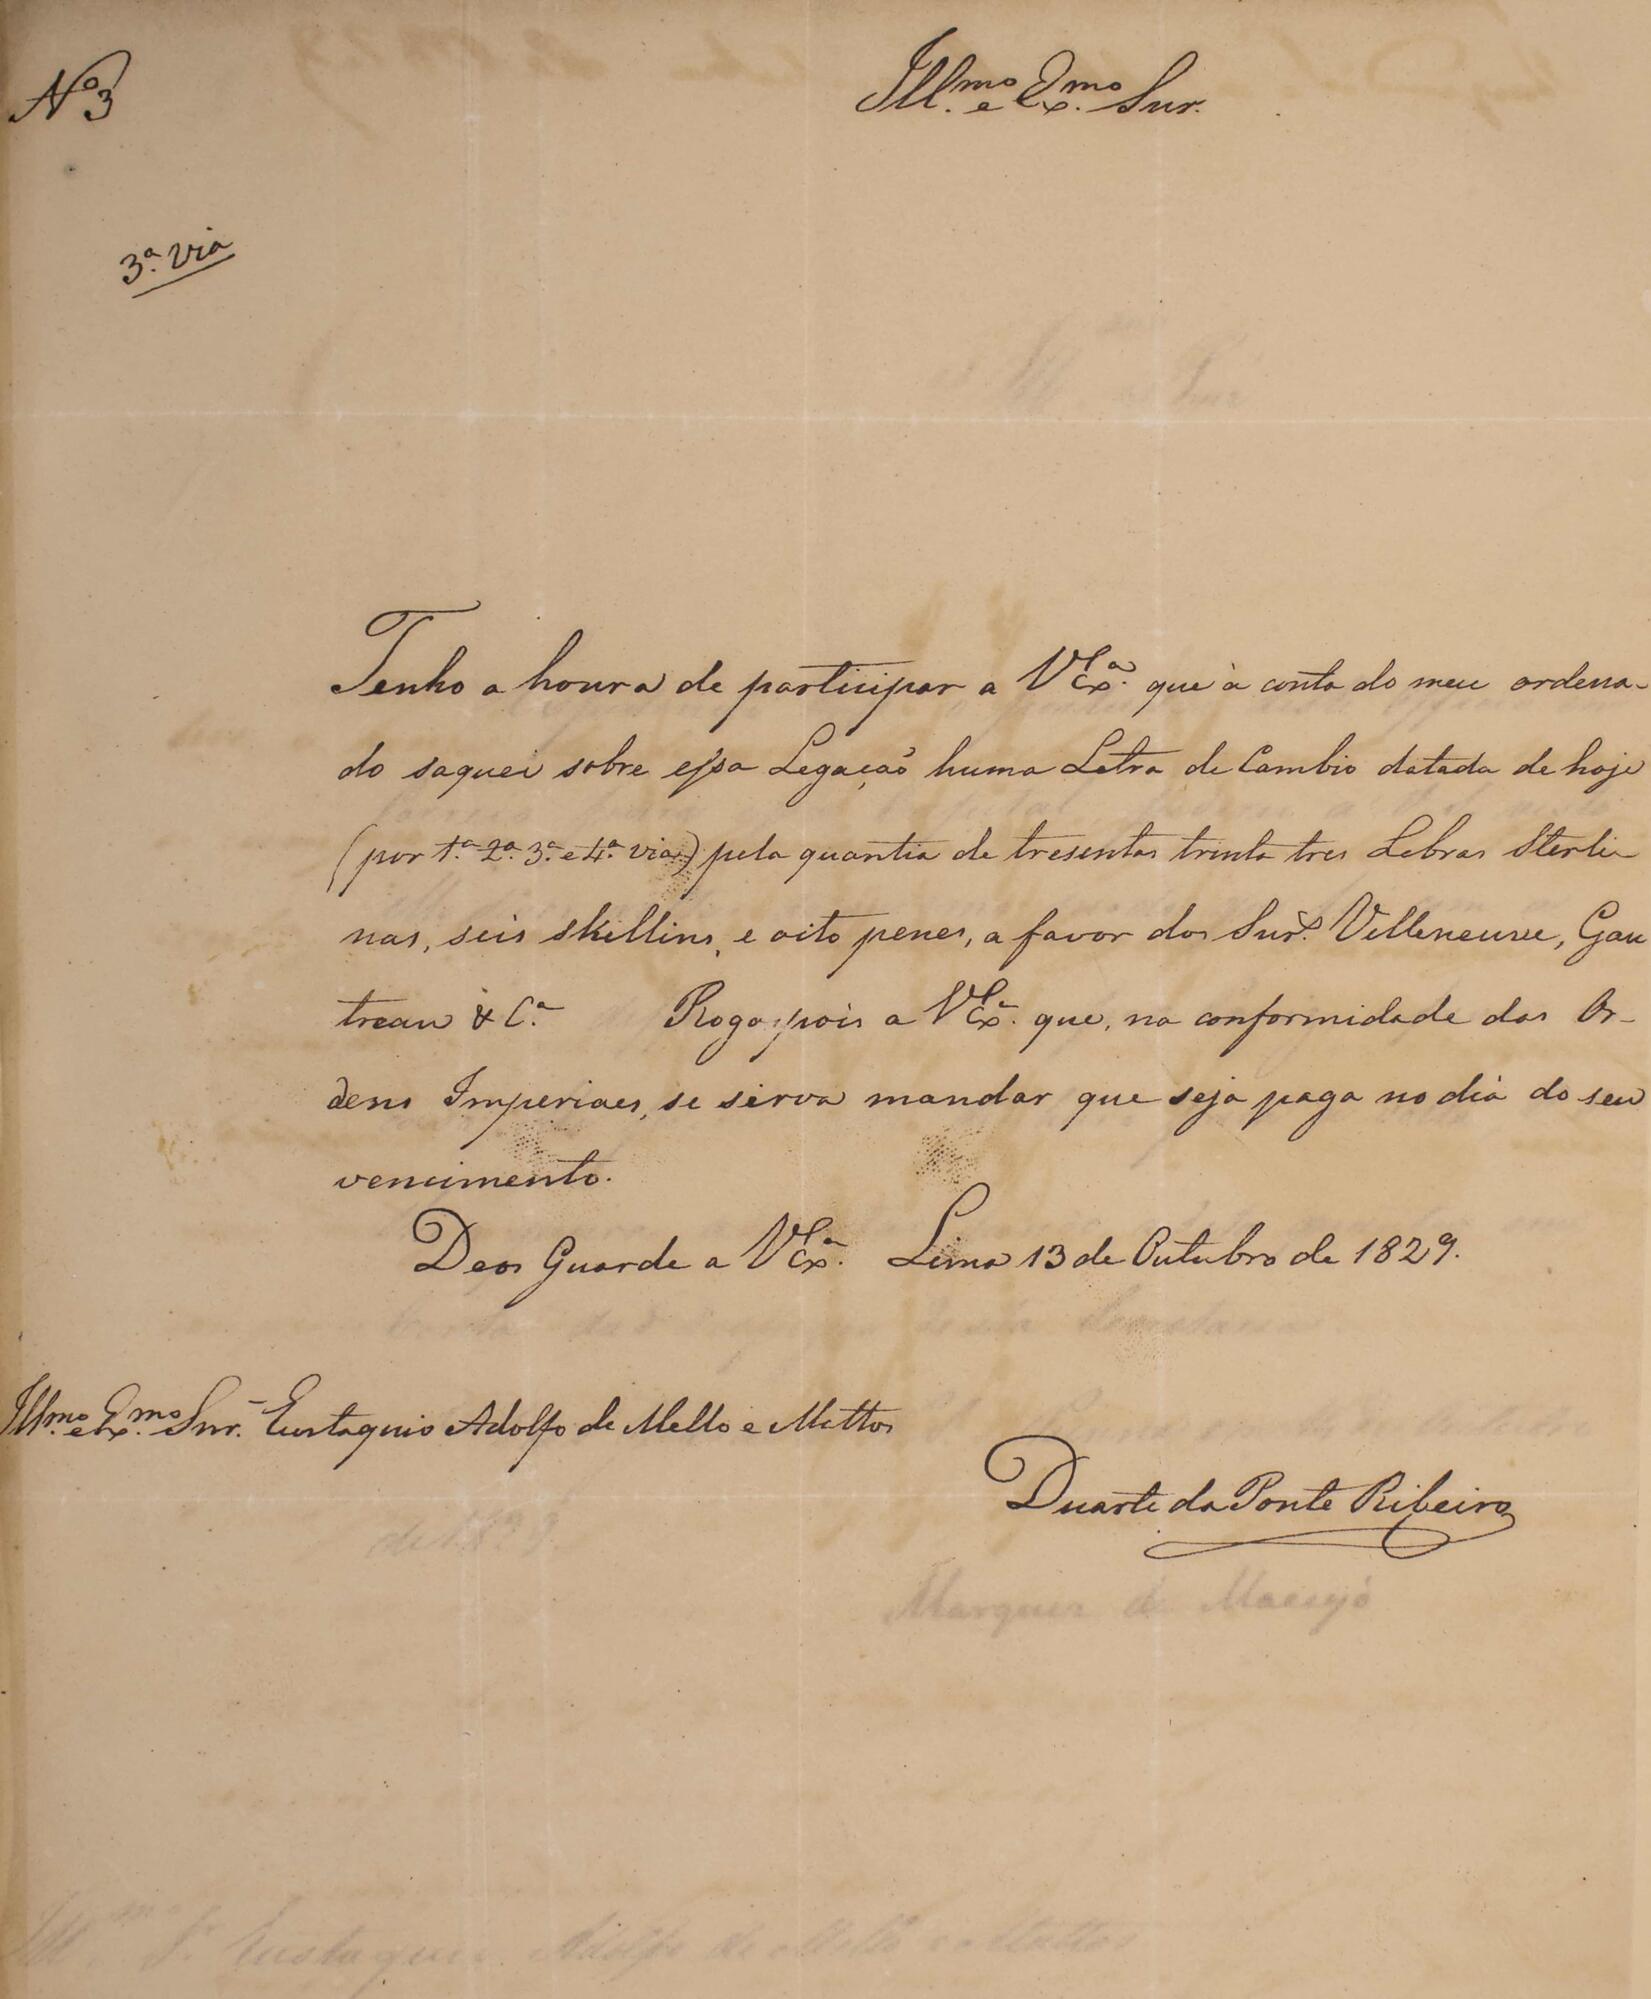 Nº 3
Ill.mo e Ex.mo Snr.
3.ª via
Tenho a honra de participar a V.Ex.ª que à conta do meu ordena-
do saquei sobre essa Legação huma Letra de Cambio datada de hoje
(por 1.ª 2.ª 3.ª e 4.ª via) pela quantia de tresentas trinta tres Lebras Sterli-
nas, seis skellins, e oito penes, a favor dos Snr.s Villeneuve, Gau
treau & C.ª Rogo, pois a V.Ex.ª que, na conformidade das Or-
dens Imperiaes, se sirva mandar que seja paga no dia do seu
vencimento.
Deos Guarde a V.Ex.ª Lima 13 de Outubro de 1829.
Ill.mo e Ex.mo Snr. Eustaquio Adolfo de Mello e Mattos
Duarte da Ponte Ribeiro
de 1829
Marquez de Maceyó
Eustaquio Adolfo de Mello e Mattos